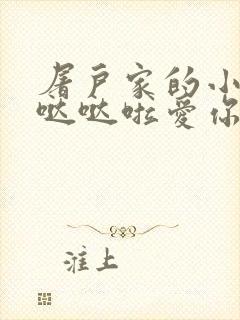 屠户家的小
哒哒啦爱你
淮上